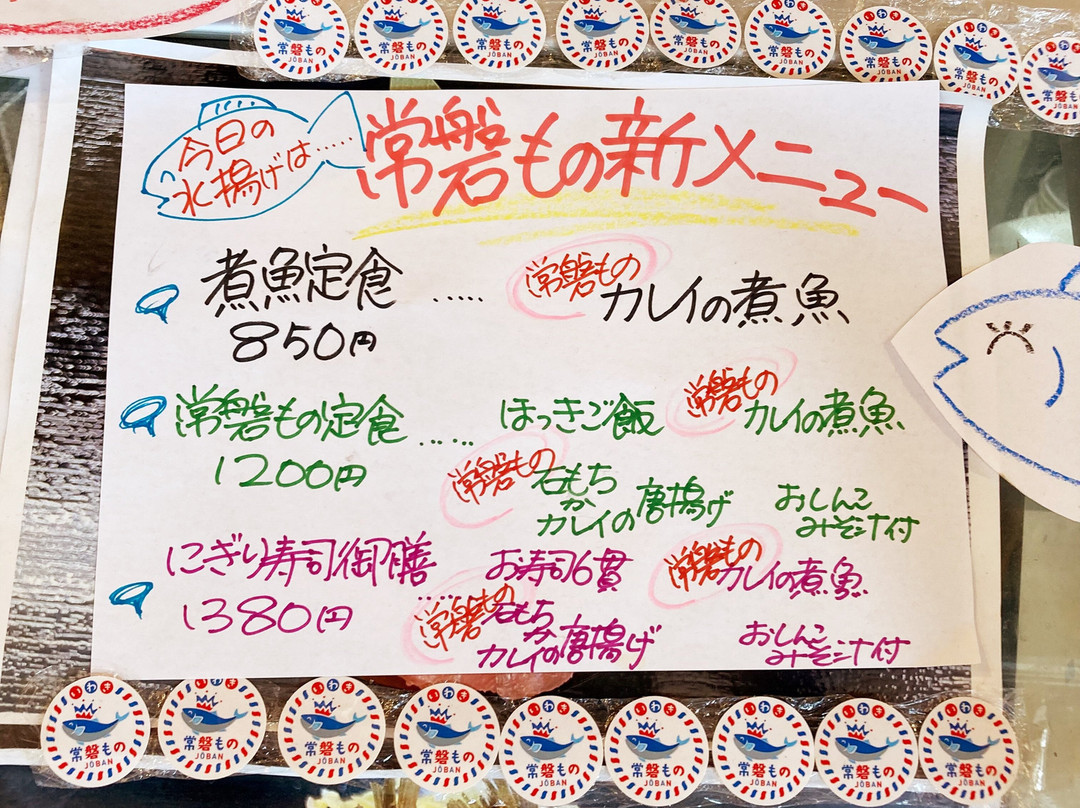 いわき 常磐もの JOBAN
いわき 常磐もの JOBAN
いわき 常磐もの JOBAN
いわき 常磐もの JOBAN
いわき 常磐もの JOBAN
いわき 常磐もの JOBAN
いわき 常磐もの JOBAN
いわき 常磐もの JOBAN
いわき 常磐もの JOBAN
今日の
水揚げは……
常磐もの新メニュー
煮魚定食 ‥‥‥ 常磐もの カレイの煮魚
850円
常磐もの定食 ‥‥‥ ほっきご飯 常磐もの カレイの煮魚
1200円
常磐もの 石もち
か
カレイの唐揚げ
おしんこ
みそ汁付
にぎり寿司御膳 ‥‥‥ お寿司6貫 常磐もの カレイの煮魚
1380円
常磐もの 石もち
か
カレイの唐揚げ
おしんこ
みそ汁付
いわき 常磐もの JOBAN
いわき 常磐もの JOBAN
いわき 常磐もの JOBAN
いわき 常磐もの JOBAN
いわき 常磐もの JOBAN
いわき 常磐もの JOBAN
いわき 常磐もの JOBAN
いわき 常磐もの JOBAN
いわき 常磐もの JOBAN